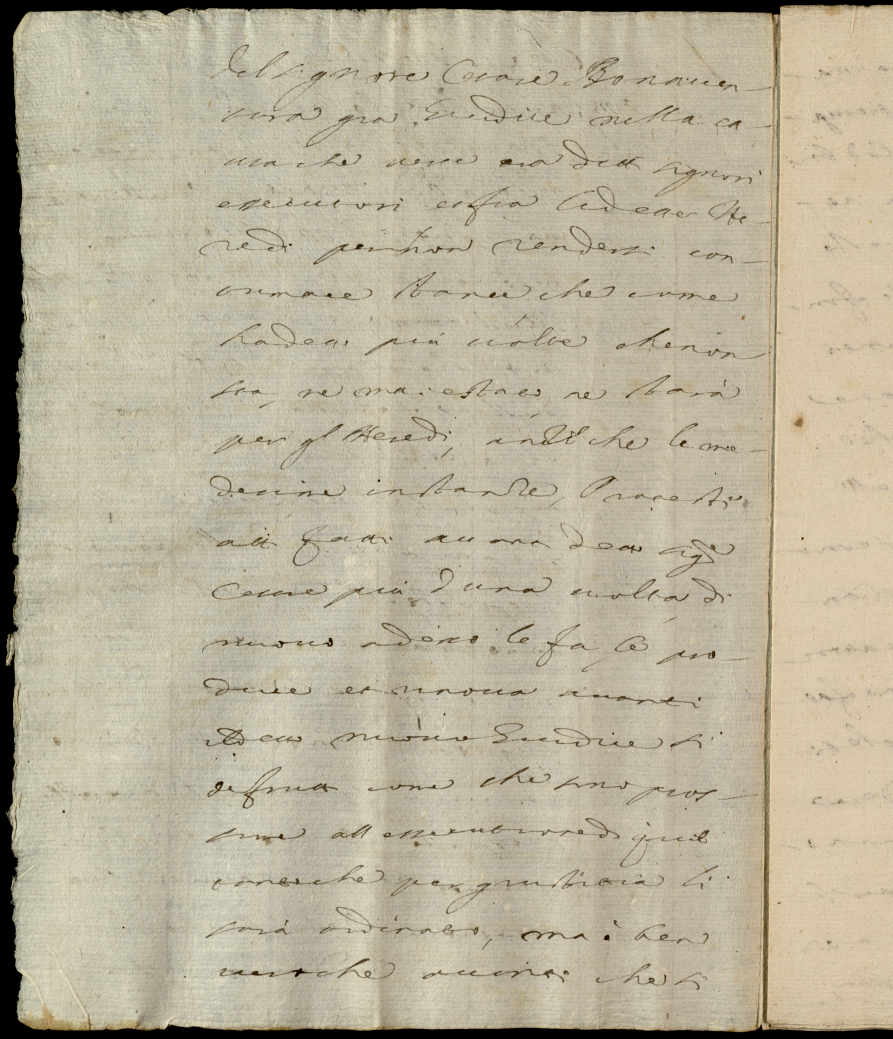 del signore Cesare Bonauen-
tura gia Giudice nella ca-
usa che uerte tra detti signori
essecutori essa li detti He-
redi per non rendersi con-
tumace stante che come
ha detto più uolte che non
sta, ne ma: è stato ne starà
per gl Heredi, anzi che le me-
desime instanze, Proteste
atti fatti auanti detto sigr
Cesare più d'una uolta di
nuouo adesso le fa, le pro-
duce et rinoua auanti
detto nuouo Giudice si
de frutti come che sono pros-
sime all essecutione di quel
tanto che per giustitia li
sarà ordinato, ma è ben
uero che auanti che si